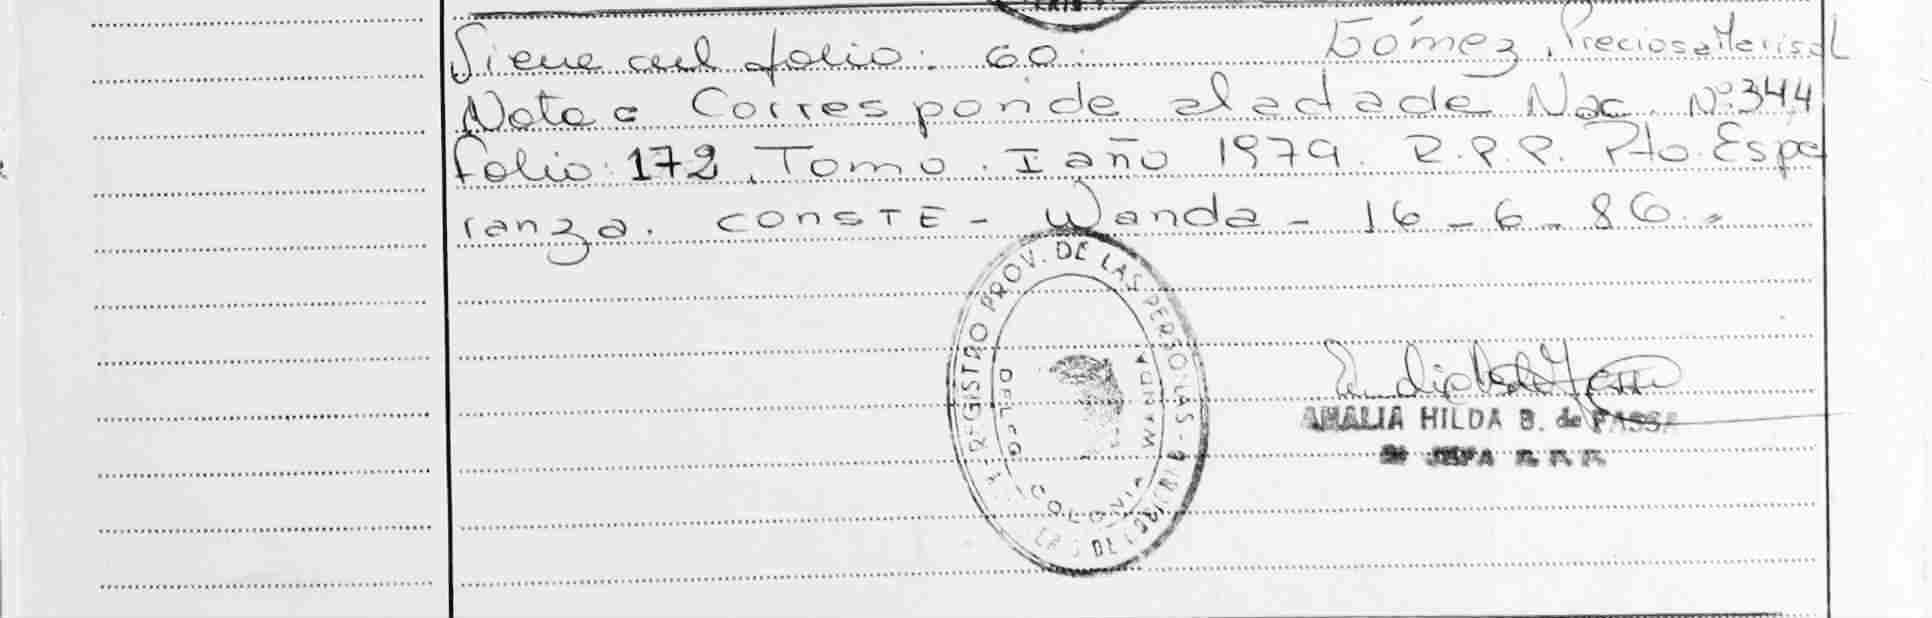 Viene del folio: 60. Gómez, Preciosa Marisol
Nota = Corresponde al acta de Nac. Nº 344
folio: 172, Tomo. I año 1979. R.P.P. Pto. Espe
ranza. CONSTE - Wanda - 16 - 6 - 86. -
REGISTRO PROV. DE LAS PERSONAS -
COLONIA WANDA
AMALIA HILDA B. de
JEFA R. P. P.